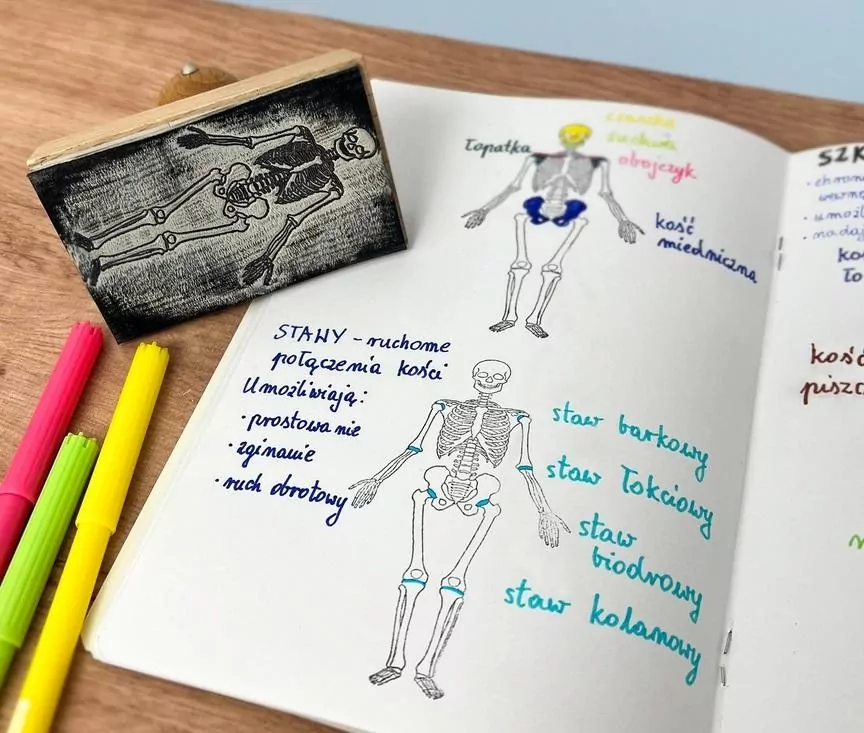 czaszka
żuchwa
łopatka
obojczyk
kość
miedniczna
STAWY - ruchome
połączenia kości
Umożliwiają:
· prostowanie
· zginanie
· ruch obrotowy
staw barkowy
staw łokciowy
staw
biodrowy
staw kolanowy
SZK
· chron
· umożl
· nadaj
kość